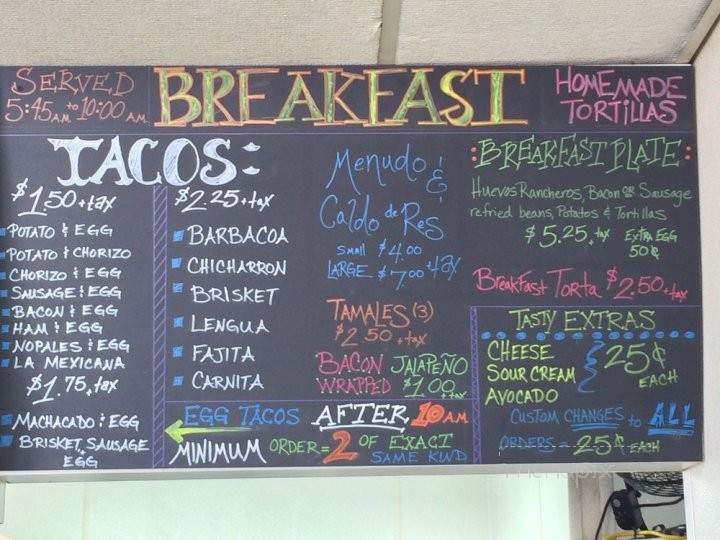 SERVED
5:45 A.M. to 10:00 A.M.
BREAKFAST
HOMEMADE
TORTILLAS
TACOS:
$1.50 + tax
POTATO & EGG
POTATO & CHORIZO
CHORIZO & EGG
SAUSAGE & EGG
BACON & EGG
HAM & EGG
NOPALES & EGG
LA MEXICANA
$1.75 + tax
MACHACADO & EGG
BRISKET, SAUSAGE
EGG
$2.25 + tax
BARBACOA
CHICHARRON
BRISKET
LENGUA
FAJITA
CARNITA
Menudo &
Caldo de Res
SMALL $4.00
LARGE $7.00 + tax
TAMALES (3)
$2.50 + tax
BACON JALAPEÑO
WRAPPED $1.00 + tax
:BREAKFAST PLATE:
Huevos Rancheros, Bacon OR Sausage
refried beans, Potatos & Tortillas
$5.25 + tax EXTRA EGG
50¢
BreakFast Torta $2.50 + tax
TASTY EXTRAS
CHEESE
SOUR CREAM
AVOCADO
25¢
EACH
CUSTOM CHANGES to ALL
ORDERS--- 25¢ EACH
EGG TACOS AFTER 10 A.M.
MINIMUM ORDER = 2 OF EXACT
SAME KIND